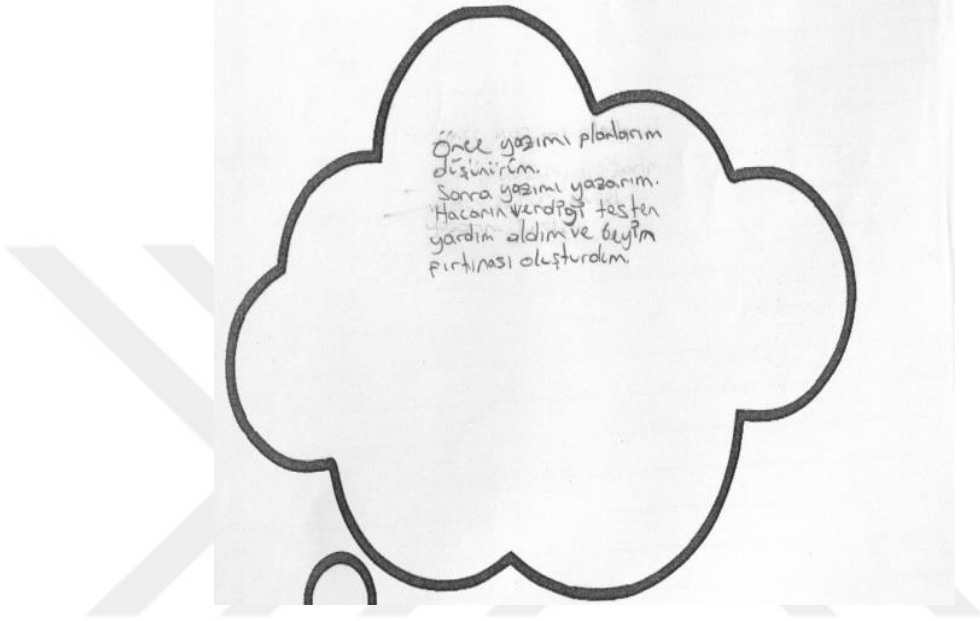 Önce yazımı planlarım
düşünürüm.
Sonra yazımı yazarım.
Hacanın verdiği testen
yardım aldım ve beyin
fırtınası oluşturdum.